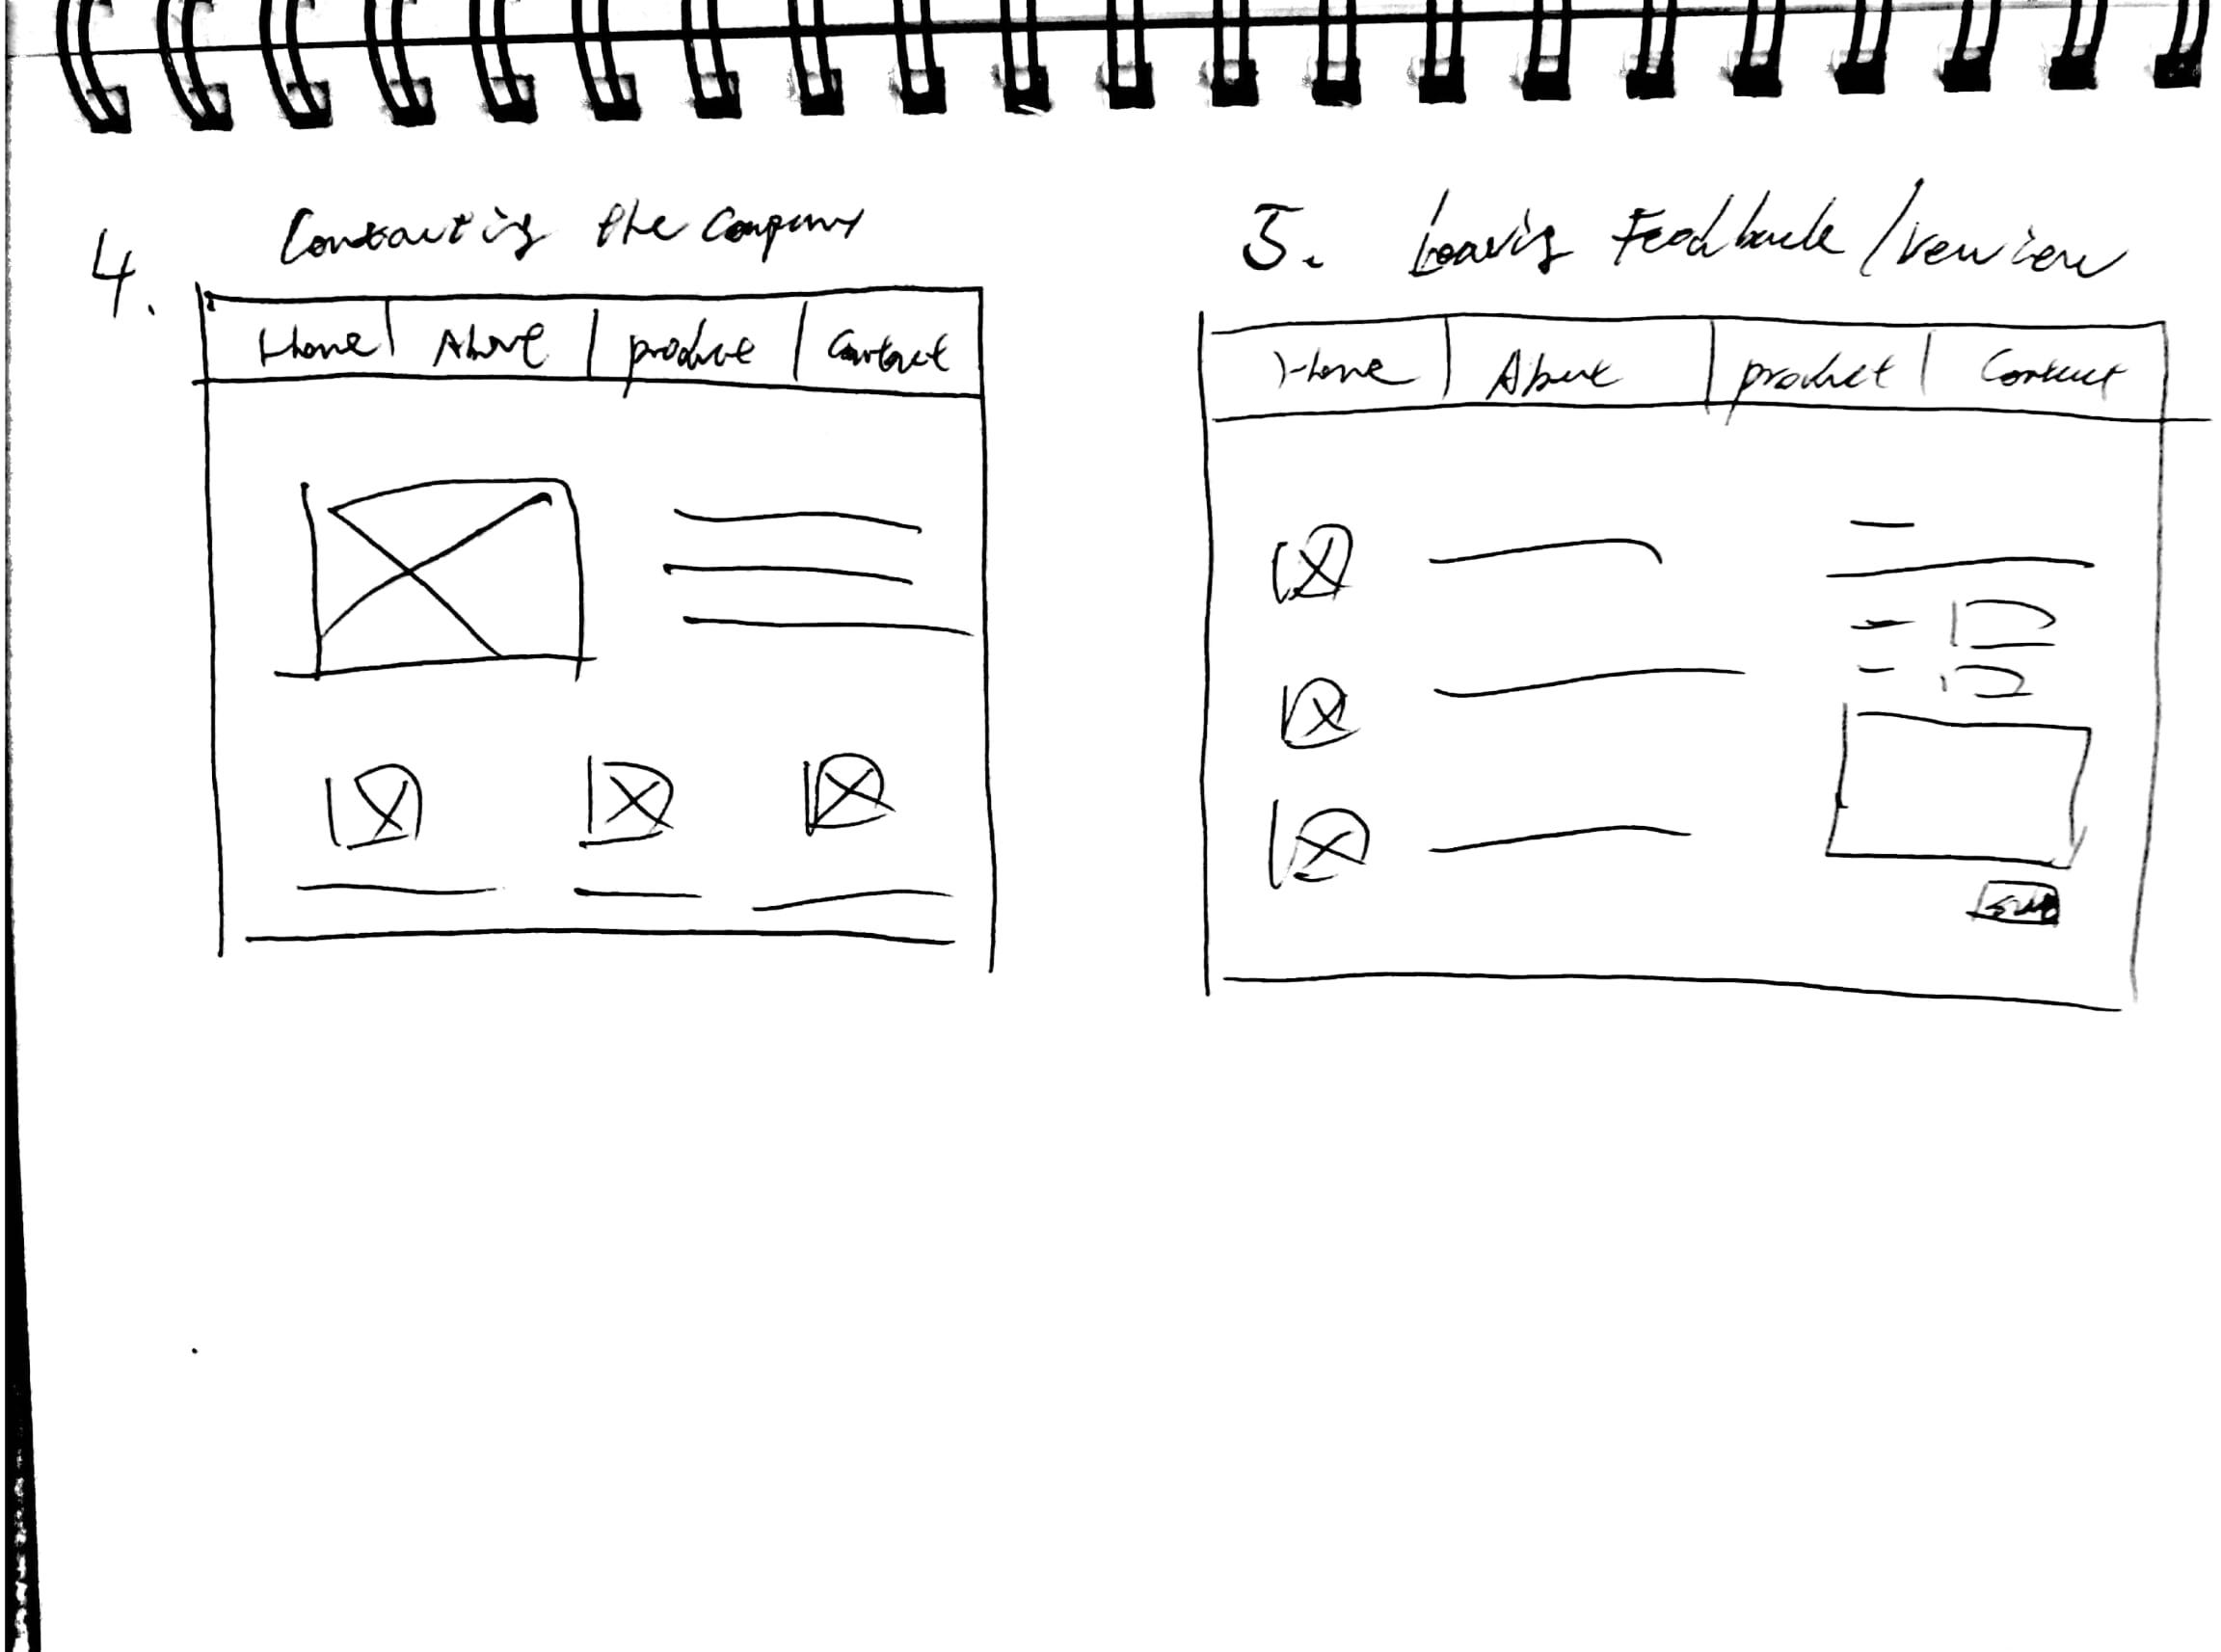 4. Contacting the Company
Home About product Contact
5. Leaving Feedback / review
Home About product Contact